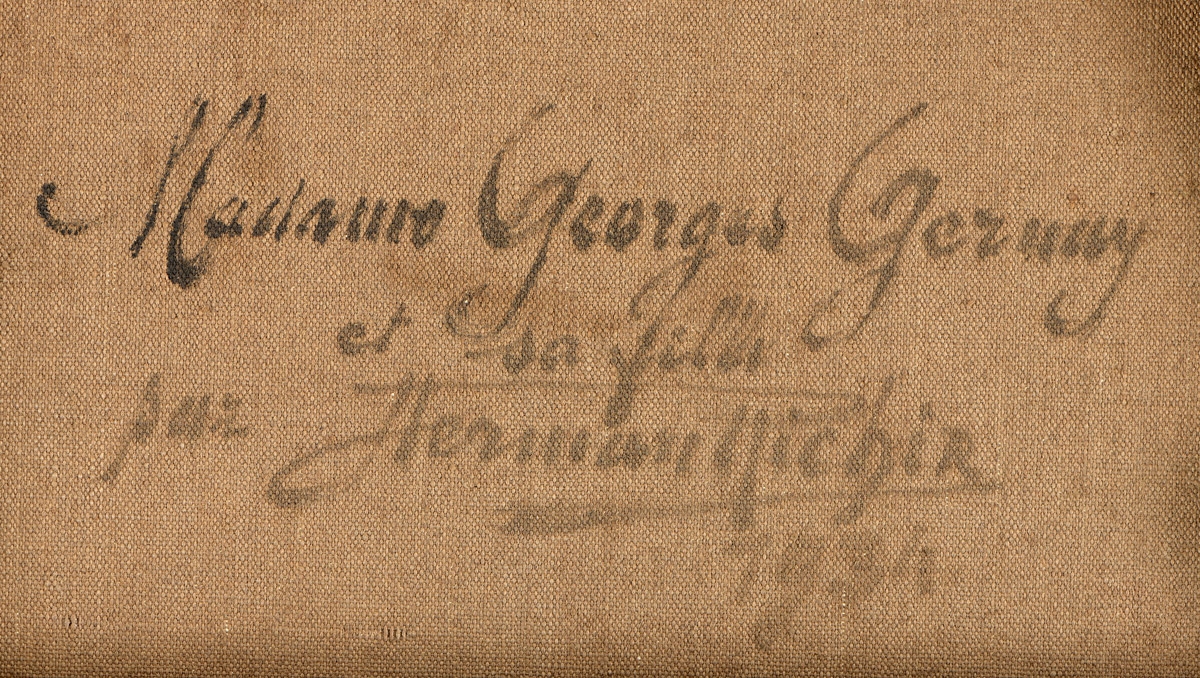 Madame Georges Gernay
et sa fille
par Herman Richir
1931